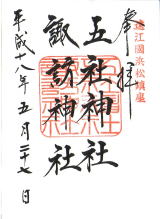 遠江國浜松鎮座
奉拝
五社神社
諏訪神社
平成十八年五月二十七日